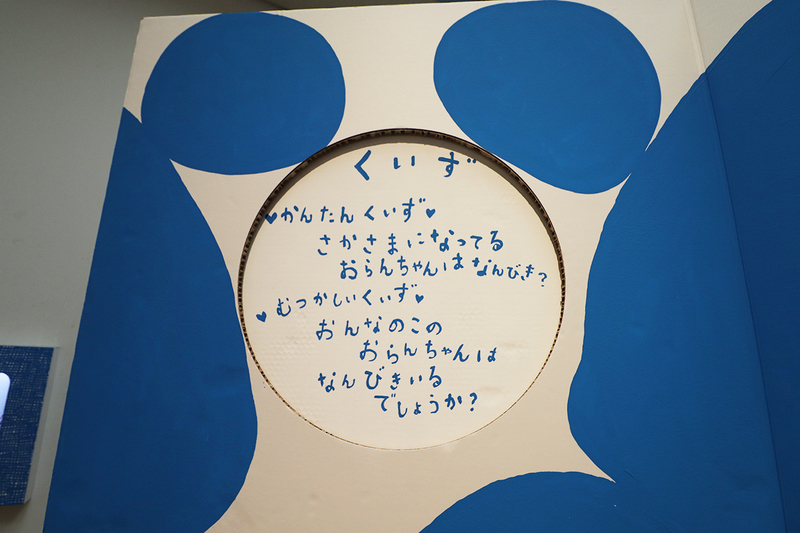 くいず
♥かんたんくいず♥
さかさまになってる
おらんちゃんはなんびき?
♥むつかしいくいず♥
おんなのこの
おらんちゃんは
なんびきいる
でしょうか?